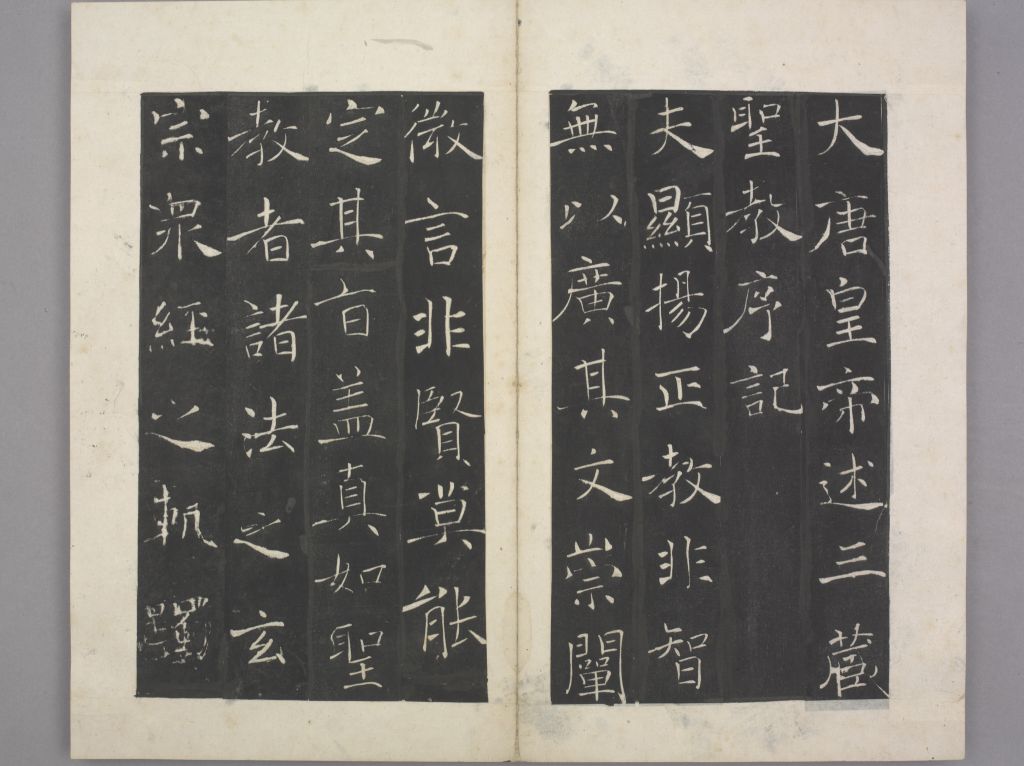 大唐皇帝述三藏
聖教序記
夫顯揚正教非智
無以廣其文崇闡
微言非賢莫能
定其旨盖真如聖
教者諸法之玄
宗衆經之軌躅